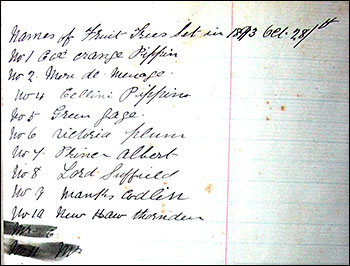 Names of Fruit Trees Set in 1893 Oct. 28th
No 1 Cox's orange Pippin
No 2. Mere de Menage.
No 4 Cellini Pippins
No 5 Green gage.
No 6 victoria plum
No 7. Prince Albert
No 8 Lord Suffield
No 9 Manks Codlin
No 10 New Hawthornden